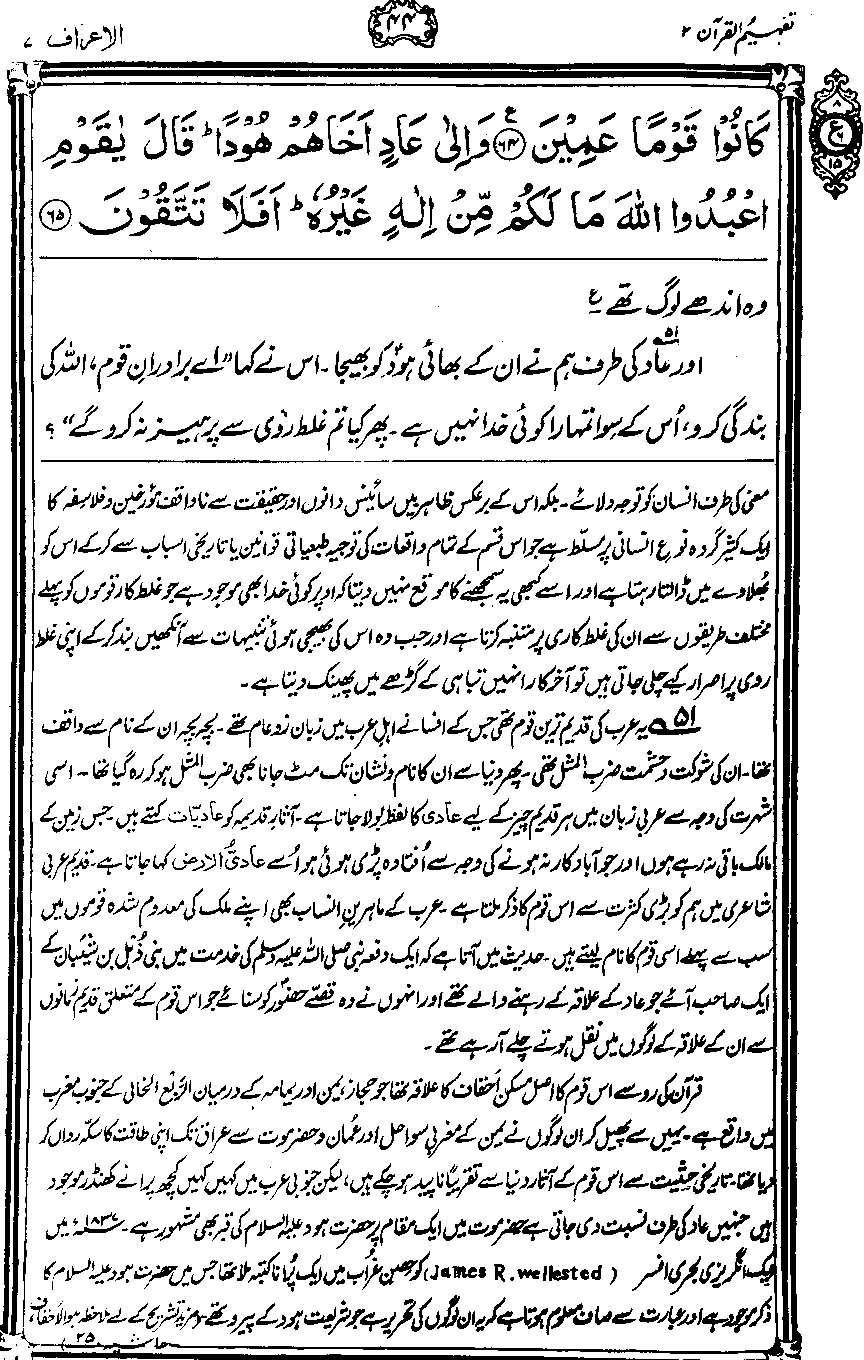 تفہیم القرآن ۲
۴۴
الاعراف ۷
كَانُوْا قَوْمًا عَمِيْنَ ﴿۶۴﴾ وَاِلٰى عَادٍ اَخَاهُمْ هُوْدًا ؕ قَالَ يٰقَوْمِ
اعْبُدُوا اللّٰهَ مَا لَكُمْ مِّنْ اِلٰهٍ غَيْرُهٗ ؕ اَفَلَا تَتَّقُوْنَ ﴿۶۵﴾
۸
ع
۱۵
وہ اندھے لوگ تھے ع
اور عاد۵۱ کی طرف ہم نے ان کے بھائی ہودؑ کو بھیجا۔ اس نے کہا ”اے برادرانِ قوم، اللہ کی
بندگی کرو، اُس کے سوا تمہارا کوئی خدا نہیں ہے۔ پھر کیا تم غلط روی سے پرہیز نہ کرو گے“؟
معنی کی طرف انسان کو توجہ دلائے۔ بلکہ اس کے برعکس ظاہر بیں سائینس دانوں اور حقیقت سے ناواقف مؤرخین و فلاسفہ کا
ایک کثیر گروہ نوع انسانی پر مسلط ہے جو اس قسم کے تمام واقعات کی توجیہ طبعیاتی قوانین یا تاریخی اسباب سے کرکے اس کو
بھلاوے میں ڈالتا رہتا ہے اور اسے کبھی یہ سمجھنے کا موقع نہیں دیتا کہ اوپر کوئی خدا بھی موجود ہے جو غلط کار قوموں کو پہلے
مختلف طریقوں سے ان کی غلط کاری پر متنبہ کرتا ہے اور جب وہ اس کی بھیجی ہوئی تنبیہات سے آنکھیں بند کرکے اپنی غلط
روی پر اصرار کیے چلی جاتی ہیں تو آخر کار انہیں تباہی کے گڑھے میں پھینک دیتا ہے۔
۵۱ یہ عرب کی قدیم ترین قوم تھی جس کے افسانے اہلِ عرب میں زبان زدِ عام تھے۔ بچہ بچہ ان کے نام سے واقف
تھا۔ ان کی شوکت و حشمت ضرب المثل تھی۔ پھر دنیا سے ان کا نام و نشان تک مٹ جانا بھی ضرب المثل ہو کر رہ گیا تھا۔ اسی
شہرت کی وجہ سے عربی زبان میں ہر قدیم چیز کے لیے عادی کا لفظ بولا جاتا ہے۔ آثارِ قدیمہ کو عادیّات کہتے ہیں۔ جس زمین کے
مالک باقی نہ رہے ہوں اور جو آباد کار نہ ہونے کی وجہ سے اُفتادہ پڑی ہوئی ہو اُسے عادیُّ الارض کہا جاتا ہے۔ قدیم عربی
شاعری میں ہم کو بڑی کثرت سے اس قوم کا ذکر ملتا ہے۔ عرب کے ماہرین انساب بھی اپنے ملک کی معدوم شدہ قوموں میں
سب سے پہلے اسی قوم کا نام لیتے ہیں۔ حدیث میں آتا ہے کہ ایک دفعہ نبی صلی اللہ علیہ وسلم کی خدمت میں بنی ذُہْل بن شَیْبان کے
ایک صاحب آئے جو عاد کے علاقہ کے رہنے والے تھے اور انہوں نے وہ قصّے حضورؐ کو سنائے جو اس قوم کے متعلق قدیم زمانوں
سے ان کے علاقہ کے لوگوں میں نقل ہوتے چلے آرہے تھے۔
قرآن کی رو سے اس قوم کا اصل مسکن اَحقاف کا علاقہ تھا جو حجاز، یمن اور یمامہ کے درمیان الرَّبع الخالی کے جنوب مغرب
میں واقع ہے۔ یہیں سے پھیل کر ان لوگوں نے یمن کے مغربی سواحل اور عُمان و حضرموت سے عراق تک اپنی طاقت کا سکہ رواں کر
دیا تھا۔ تاریخی حیثیت سے اس قوم کے آثار دنیا سے تقریبًا ناپید ہوچکے ہیں، لیکن جنوبی عرب میں کہیں کہیں کچھ پرانے کھنڈر موجود
ہیں جنہیں عاد کی طرف نسبت دی جاتی ہے حضرموت میں ایک مقام پر حضرت ہود علیہ السلام کی قبر بھی مشہور ہے۔ ۱۸۳۷ء میں
ایک انگریزی بحری افسر (James R. wellested) کو حصن غُراب میں ایک پُرانا کتبہ ملا تھا جس میں حضرت ہود علیہ السلام کا
ذکر موجود ہے اور عبارت سے صاف معلوم ہوتا ہے کہ یہ ان لوگوں کی تحریر ہے جو شریعت ہود کے پیرو تھے۔ (مزید تشریح کے لیے ملاحظہ ہو الاحقاف،
حاشیہ ۲۵)